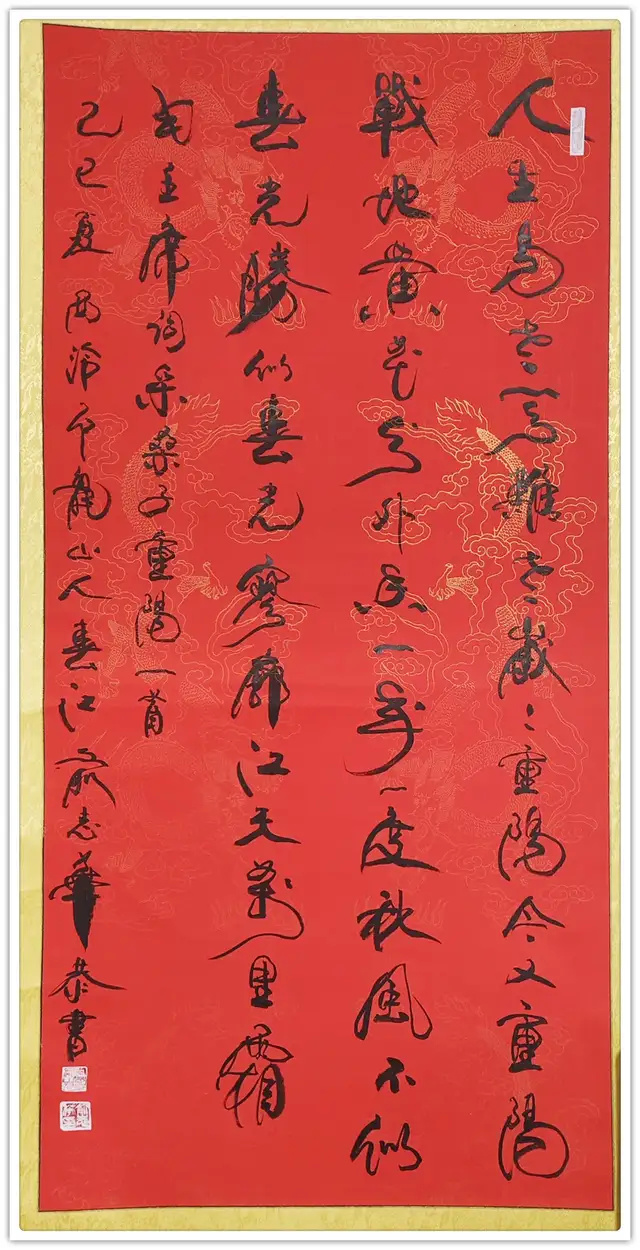 人生易老天難老歲〻重陽今又重陽
戰地黃花分外香一年一度秋風不似
春光勝似春光寥廓江天萬里霜
毛主席詞采桑子重陽一首
己巳夏西泠山人春江俞志華恭書